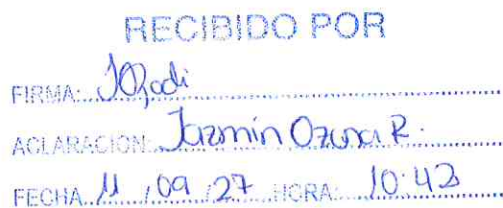 RECIBIDO POR
FIRMA:
ACLARACION: Jazmín Ozuna R.
FECHA 11 / 09 / 27 HORA: 10:43